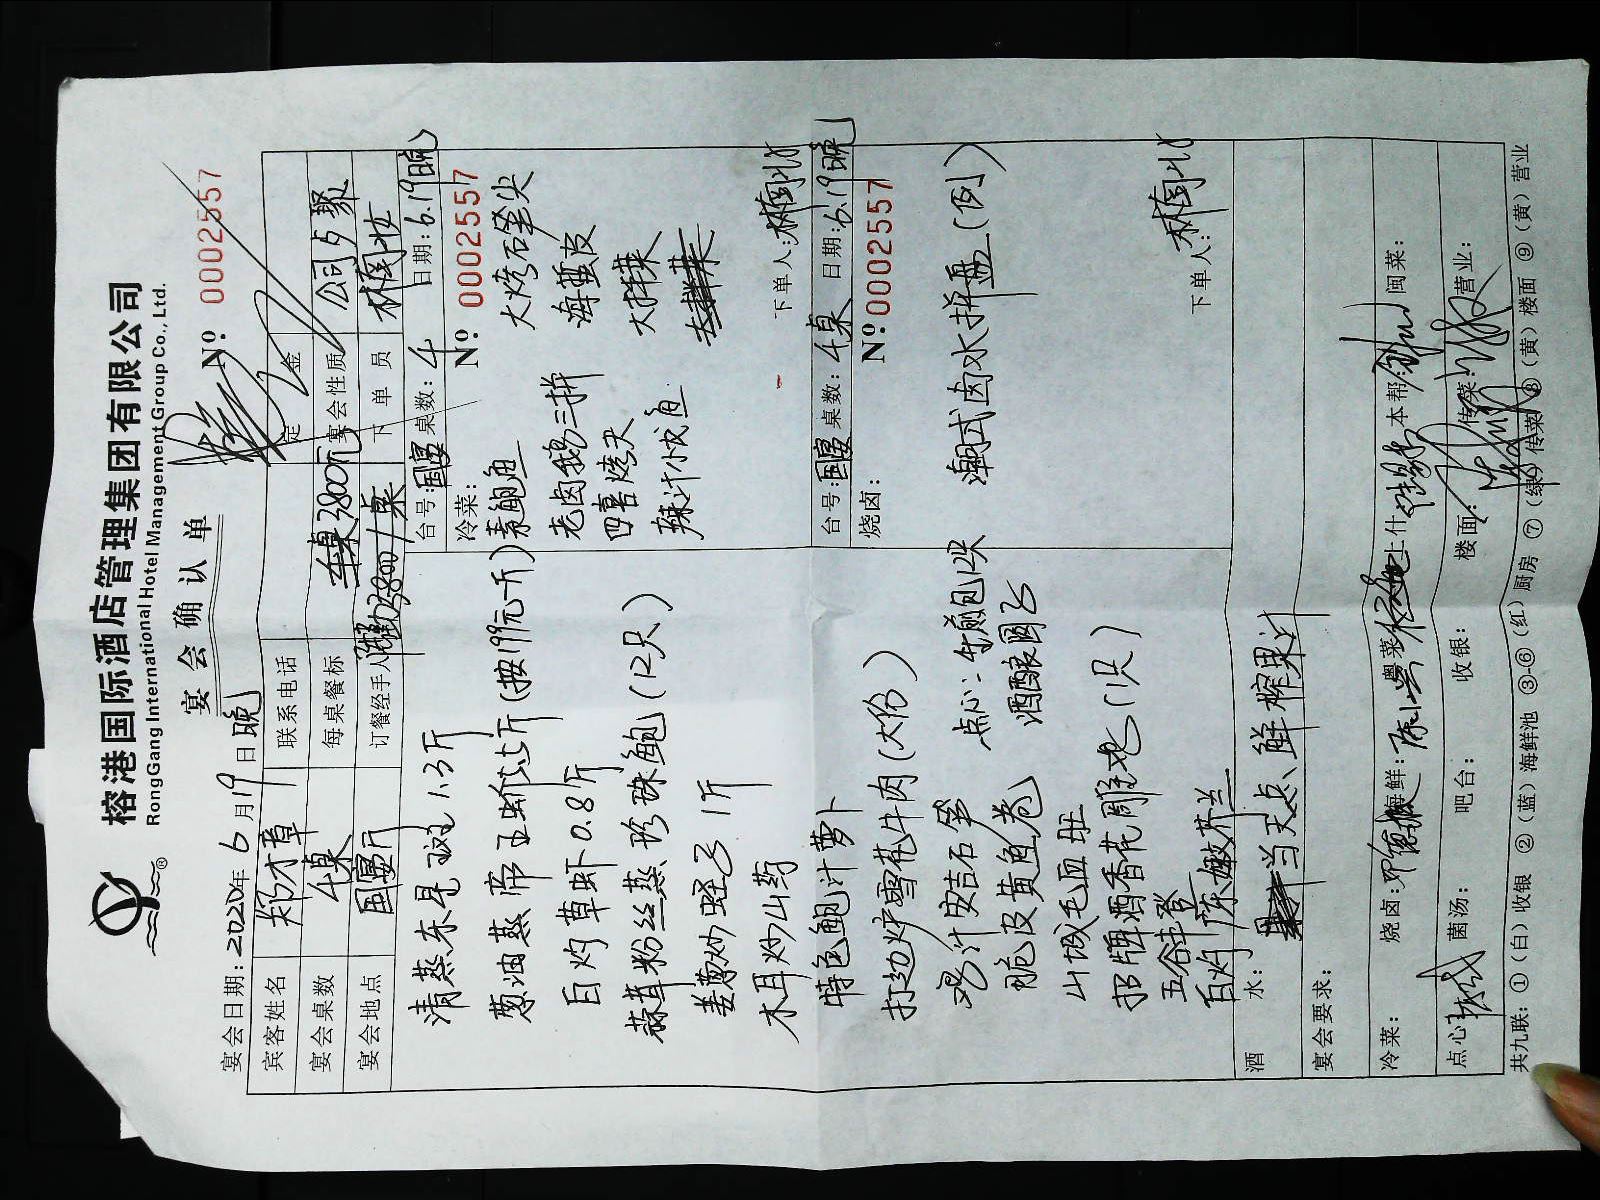 榕港国际酒店管理集团有限公司
RongGang International Hotel Management Group Co., Ltd.
宴会确认单
№ 0002557
宴会日期：2020年6月19日晚
宾客姓名 联系电话 定金
宴会桌数 4桌 每桌餐标 3800元 宴会性质 公司
宴会地点 国宴厅 订餐经手人 下单员
清蒸东星斑1.3斤
葱油蒸帝王蛤
斤(按199元一斤)
白灼草虾0.8斤
蒜茸粉丝蒸珍珠鲍(12只)
姜葱炒蛏子1斤
木耳炒山药
特色鲍汁萝卜
打边炉雪花牛肉(大份)
汁安吉石笋
脆皮黄鱼卷
山城毛血旺
招牌酒香花雕
(1只)
五谷丰登
白灼
点心：
酒酿圆子
台号：国宴 桌数：4 日期：6.19晚
冷菜： № 0002557
素鲍鱼 大烤石笔尖
老卤鹅三拼 海蜇皮
四喜烤夫 大拌菜
辣汁小
鱼
下单人：
台号：国宴 桌数：4桌 日期：6.19晚
烧卤： № 0002557
潮式卤水拼盘(例)
下单人：
酒水： 当天点 鲜榨果汁
宴会要求：
冷菜： 烧卤： 海鲜： 粤菜： 上什： 本帮： 闽菜：
点心： 菌汤： 吧台： 收银： 楼面： 传菜： 营业：
共九联：①(白)收银 ②(蓝)海鲜池 ③-⑥(红)厨房 ⑦(绿)传菜 ⑧(黄)楼面 ⑨(黄)营业